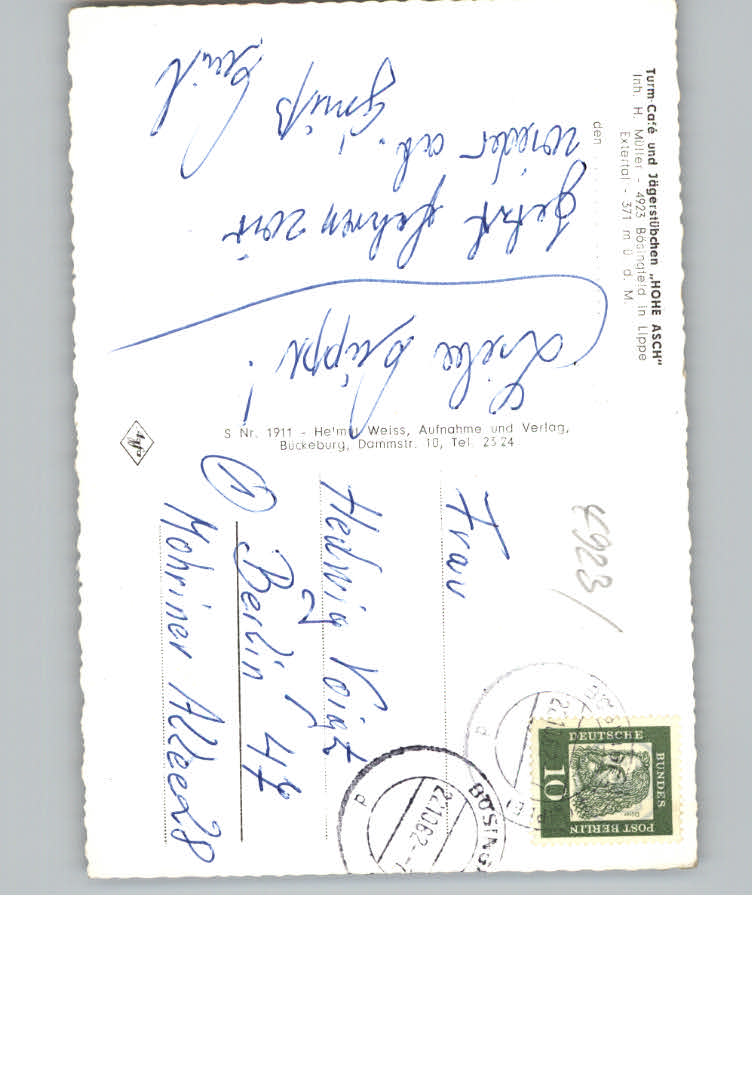 Turm-Café und Jägerstübchen „HOHE ASCH"
Inh. H. Müller - 4923 Bösingfeld in Lippe
Extertal - 371 m ü. d. M.
den
Liebe
Jetzt fahren wir
wieder ab.
Gruß
S Nr. 1911 - Helmut Weiss, Aufnahme und Verlag,
Bückeburg, Dammstr. 10, Tel. 23 24
Agfa
4923/
Frau
Hedwig Voigt
1 Berlin 47
Mohriner Allee 28
DEUTSCHE
BUNDES
POST BERLIN
10
Dürer
BÖSING
22.10.62